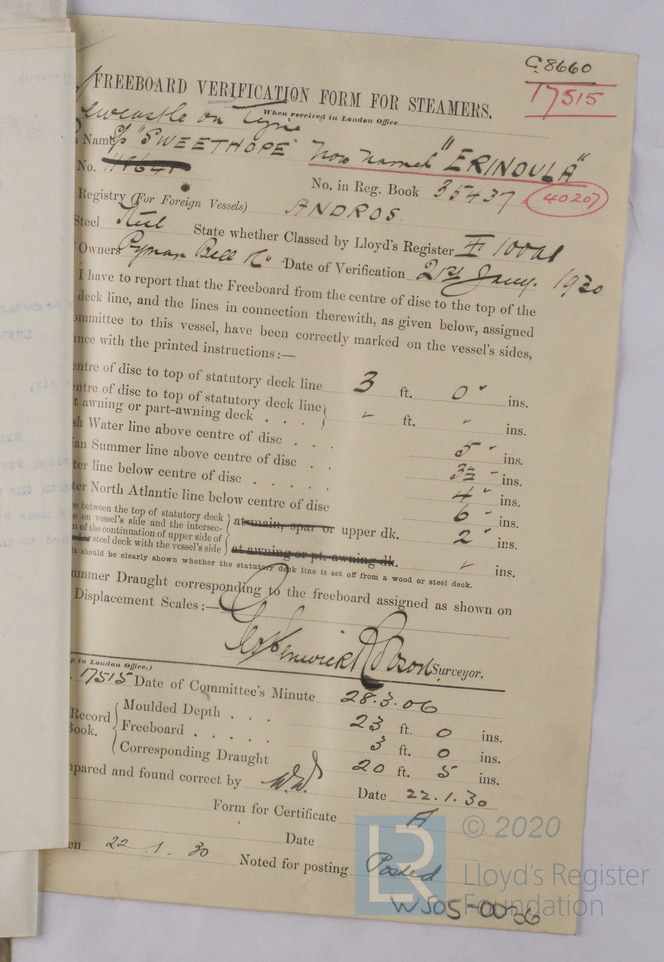 C8660
17515
FREEBOARD VERIFICATION FORM FOR STEAMERS.
ewcastle on Tyne When received in London Office
Name S/S "SWEETHOPE" Now named "ERINOULA"
No. No. in Reg. Book 35437 (40207)
Registry (For Foreign Vessels) ANDROS.
Steel Steel State whether Classed by Lloyd's Register ✠ 100A1
Owners Pyman Bell & Co Date of Verification 21st Jany. 1930
I have to report that the Freeboard from the centre of disc to the top of the
deck line, and the lines in connection therewith, as given below, assigned
ommittee to this vessel, have been correctly marked on the vessel's sides,
nce with the printed instructions:—
entre of disc to top of statutory deck line 3 ft. 0" ins.
entre of disc to top of statutory deck line
t awning or part-awning deck . . . " ft. " ins.
sh Water line above centre of disc . . . 5" ins.
ian Summer line above centre of disc . . 3½" ins.
ter line below centre of disc . . . . . 4" ins.
ter North Atlantic line below centre of disc 6" ins.
e between the top of statutory deck
e on vessel's side and the intersec-
n of the continuation of upper side of
steel deck with the vessel's side
at main, spar or upper dk. 2" ins.
at awning or pt. awning dk. " ins.
ts should be clearly shown whether the statutory deck line is set off from a wood or steel deck.
ummer Draught corresponding to the freeboard assigned as shown on
Displacement Scales:—
Geo Fenwick Robson Surveyor.
p in London Office.)
17515 Date of Committee's Minute 28.3.06
Record Book. Moulded Depth . . . 23 ft. 0 ins.
Freeboard . . . . . 3 ft. 0 ins.
Corresponding Draught 20 ft. 5 ins.
mpared and found correct by W.W. Date 22.1.30
Form for Certificate A
Date
en 22.1.30 Noted for posting Posted
W505-0056
© 2020
Lloyd's Register
Foundation
LR